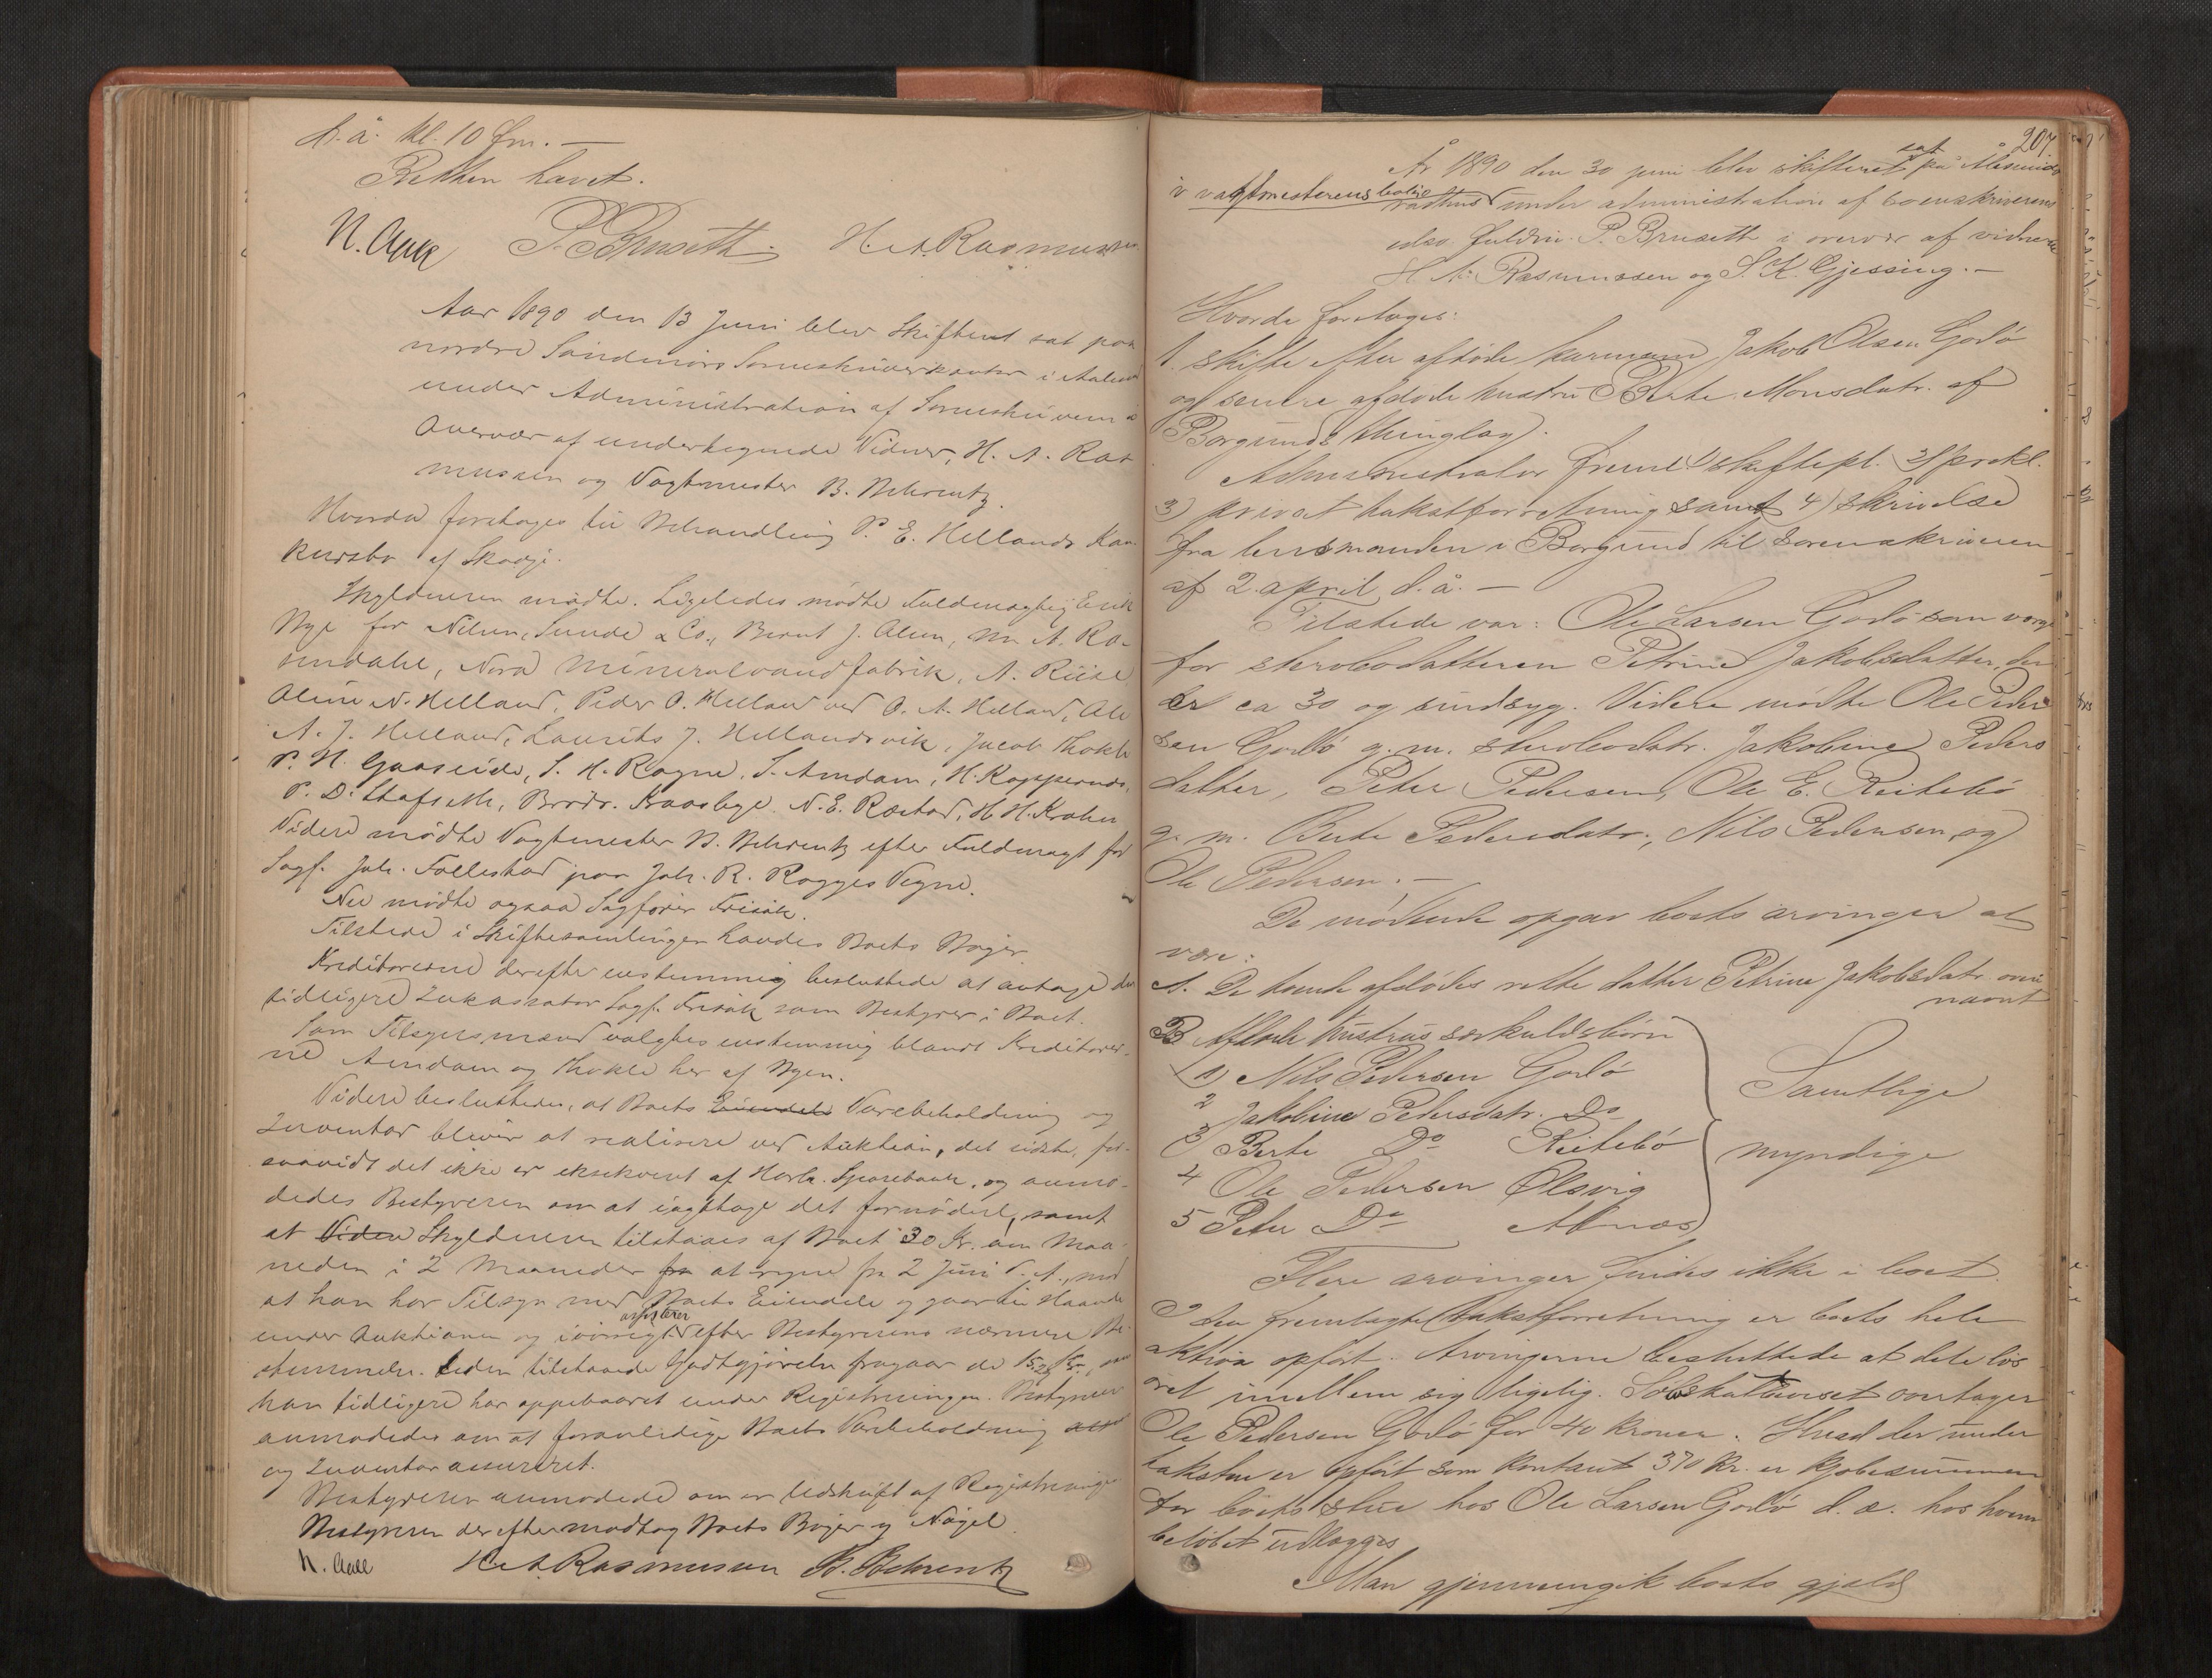 d. å. kl. 10 fm. —
Retten hævet.
N. Aall P. Bruseth. H. A. Rasmussen
Aar 1890 den 13 Juni blev Skifteret sat paa
nordre Søndmørs Sorenskriverkontor i Aalesund
under Administration af Sorenskriveren i
Overvær af undertegnede Vidner, H. A. Ras
mussen og Vagtmester B. Behrentz.
Hvorda foretoges til Behandling P. E. Hellands Kon
kursbo af Skodje.
Skyldneren mødte. Ligeledes mødte Fuldmægtig Erik
Nye for Nelun, Sunde & Co., Bernt J. Alun, M. A. Ro-
sendahl, Nora Mineralvandfabrik, A. Riise
Oline N. Helland, Peder O. Helland ved O. A. Helland, Ole
A. J. Helland, Laurits J. Hellandsvik, Jacob Thokle
P. H. Gaaseide, S. H. Rogne, S. Amdam, H. Koppernæs,
P. D. Stafseth, Brødr. Kaarbye. N. E. Ræstad, H. H. Kroken
Videre mødte Vagtmester B. Behrentz efter Fuldmagt for
Sagf. Joh. Føllestad paa Joh. R. Rogges Vegne.
Nu mødte ogsaa Sagfører Frisak.
Tilstede i Skiftesamlingen havdes Boets Bøger.
Kreditorerne derefter enstemmig besluttede at antage den
tidligere Inkassator Sagf. Frisak som Bestyrer i Boet.
Som Tilsynsmænd valgtes enstemmig blandt Kreditorer-
ne Amdam og Thokle her af Byen.
Videre besluttedes, at Boets Eiendele Varebeholdning og
Inventar bliver at realisere ved Auktion, det sidste, for-
saavidt det ikke er eksekveret af Harh. Sparebank, og anmo-
dedes Bestyreren om at iagttage det fornødne, samt
at Videre Skyldneren tilstaaes af Boet 30 Kr. om Maa-
neden i 2 Maaneder fra at regne fra 2 Juni d. A., mod
at han har Tilsyn med Boets Eiendele og gaar til Haande
under Auktionen og iøvrigt efter Bestyrerens nærmere Be-
stemmelse. I den tilstaaede Godtgjørelse fragaar de 15 Kr., som
han tidligere har oppebaaret under Registreringen. Bestyreren
anmodedes om at foranledige Boets Varebeholdning
og Inventar assureret.
Bestyreren anmodede om en Udskrift af Registrerings
Bestyreren derefter modtog Boets Bøger og Nøgel.
N. Aall H. A. Rasmussen B. Behrentz
207
År 1890 den 30 juni blev skifteret sat på Ålesunds
i vagtmesterens bolig
rådhus under administration af sorenskriverens
edsv. fuldm. P. Bruseth i overvær af vidnerne
H. A. Rasmussen og S. K. Gjessing. —
Hvorda foretoges:
1. skifte efter afdøde kårmand Jakob Olsen Godø
og senere afdøde hustru Berte Monsdatr. af
Borgunds thinglag.
Administrator freml. 1) skiftepl. 2) prokl.
3) privat takstforretning samt 4) skrivelse
fra lensmanden i Borgund til sorenskriveren
af 2 april d. å. —
Tilstede var: Ole Larsen Godø som værge
for sterbodatteren Petrine Jakobsdatter, der
er ca 30 og sindsyg. Videre mødte Ole Peder
sen Godø g. m. sterbodatr. Jakobine Peders
datter, Peter Pedersen, Ole E. Reitebø
g. m. Berte Pedersdatr., Nils Pedersen, og
Ole Pedersen. —
De mødende opgav boets arvinger at
være:
A. De tvende afdødes rette datter Petrine Jakobsdatr. oven
nævnt
B Afdøde hustrus særkuldsbørn
1) Nils Pedersen Godø
2 Jakobine Pedersdatr. Do
3) Berte Do Reitebø
4 Ole Pedersen Ølsvig
5 Peter Do Alnæs
Samtlige
myndige
Flere arvinger findes ikke i boet.
I den fremlagte takstforretning er boets hele
aktiva opført. Arvingerne besluttede at dele løs
øret imellem sig ligelig. overtager
Ole Pedersen Godø for 40 kroner. Hvad der under
taksten er opført som kontant 370 kr. er kjøbesummen
for boets stue hos Ole Larsen Godø d. æ. hos hvem
beløbet udlægges
Man gjennemgik boets gjeld